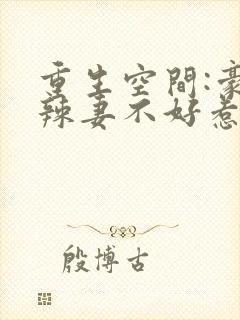 重生空間:豪
辣妻不好惹
殷博古